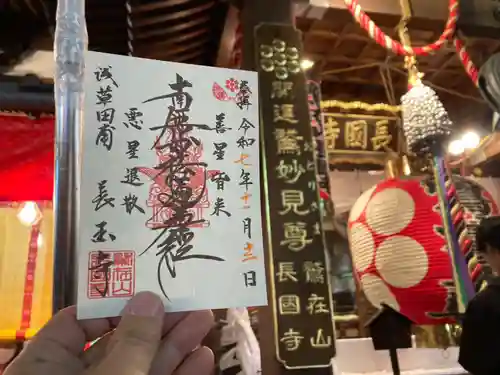 奉拝
令和七年十一月十二日
善星皆来
南無妙法蓮華経
悪星退散
浅草田甫
長国寺
開運鷲妙見尊
鷲在山
長國寺
長國寺